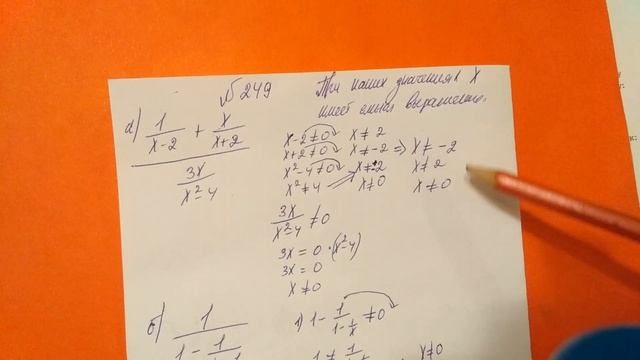 №249
При каких значениях x
имеет смысл выражение.
а) 1/(x-2) + x/(x+2)
3x/(x²-4)
x-2≠0 x≠2
x+2≠0 x≠-2 => x≠-2
x²-4≠0 x≠±2 x≠2
x²≠4 x≠0 x≠0
3x/(x²-4) ≠0
3x=0·(x²-4)
3x=0
x≠0
б) 1
1) 1-1/(1-1/x) ≠0
x≠0